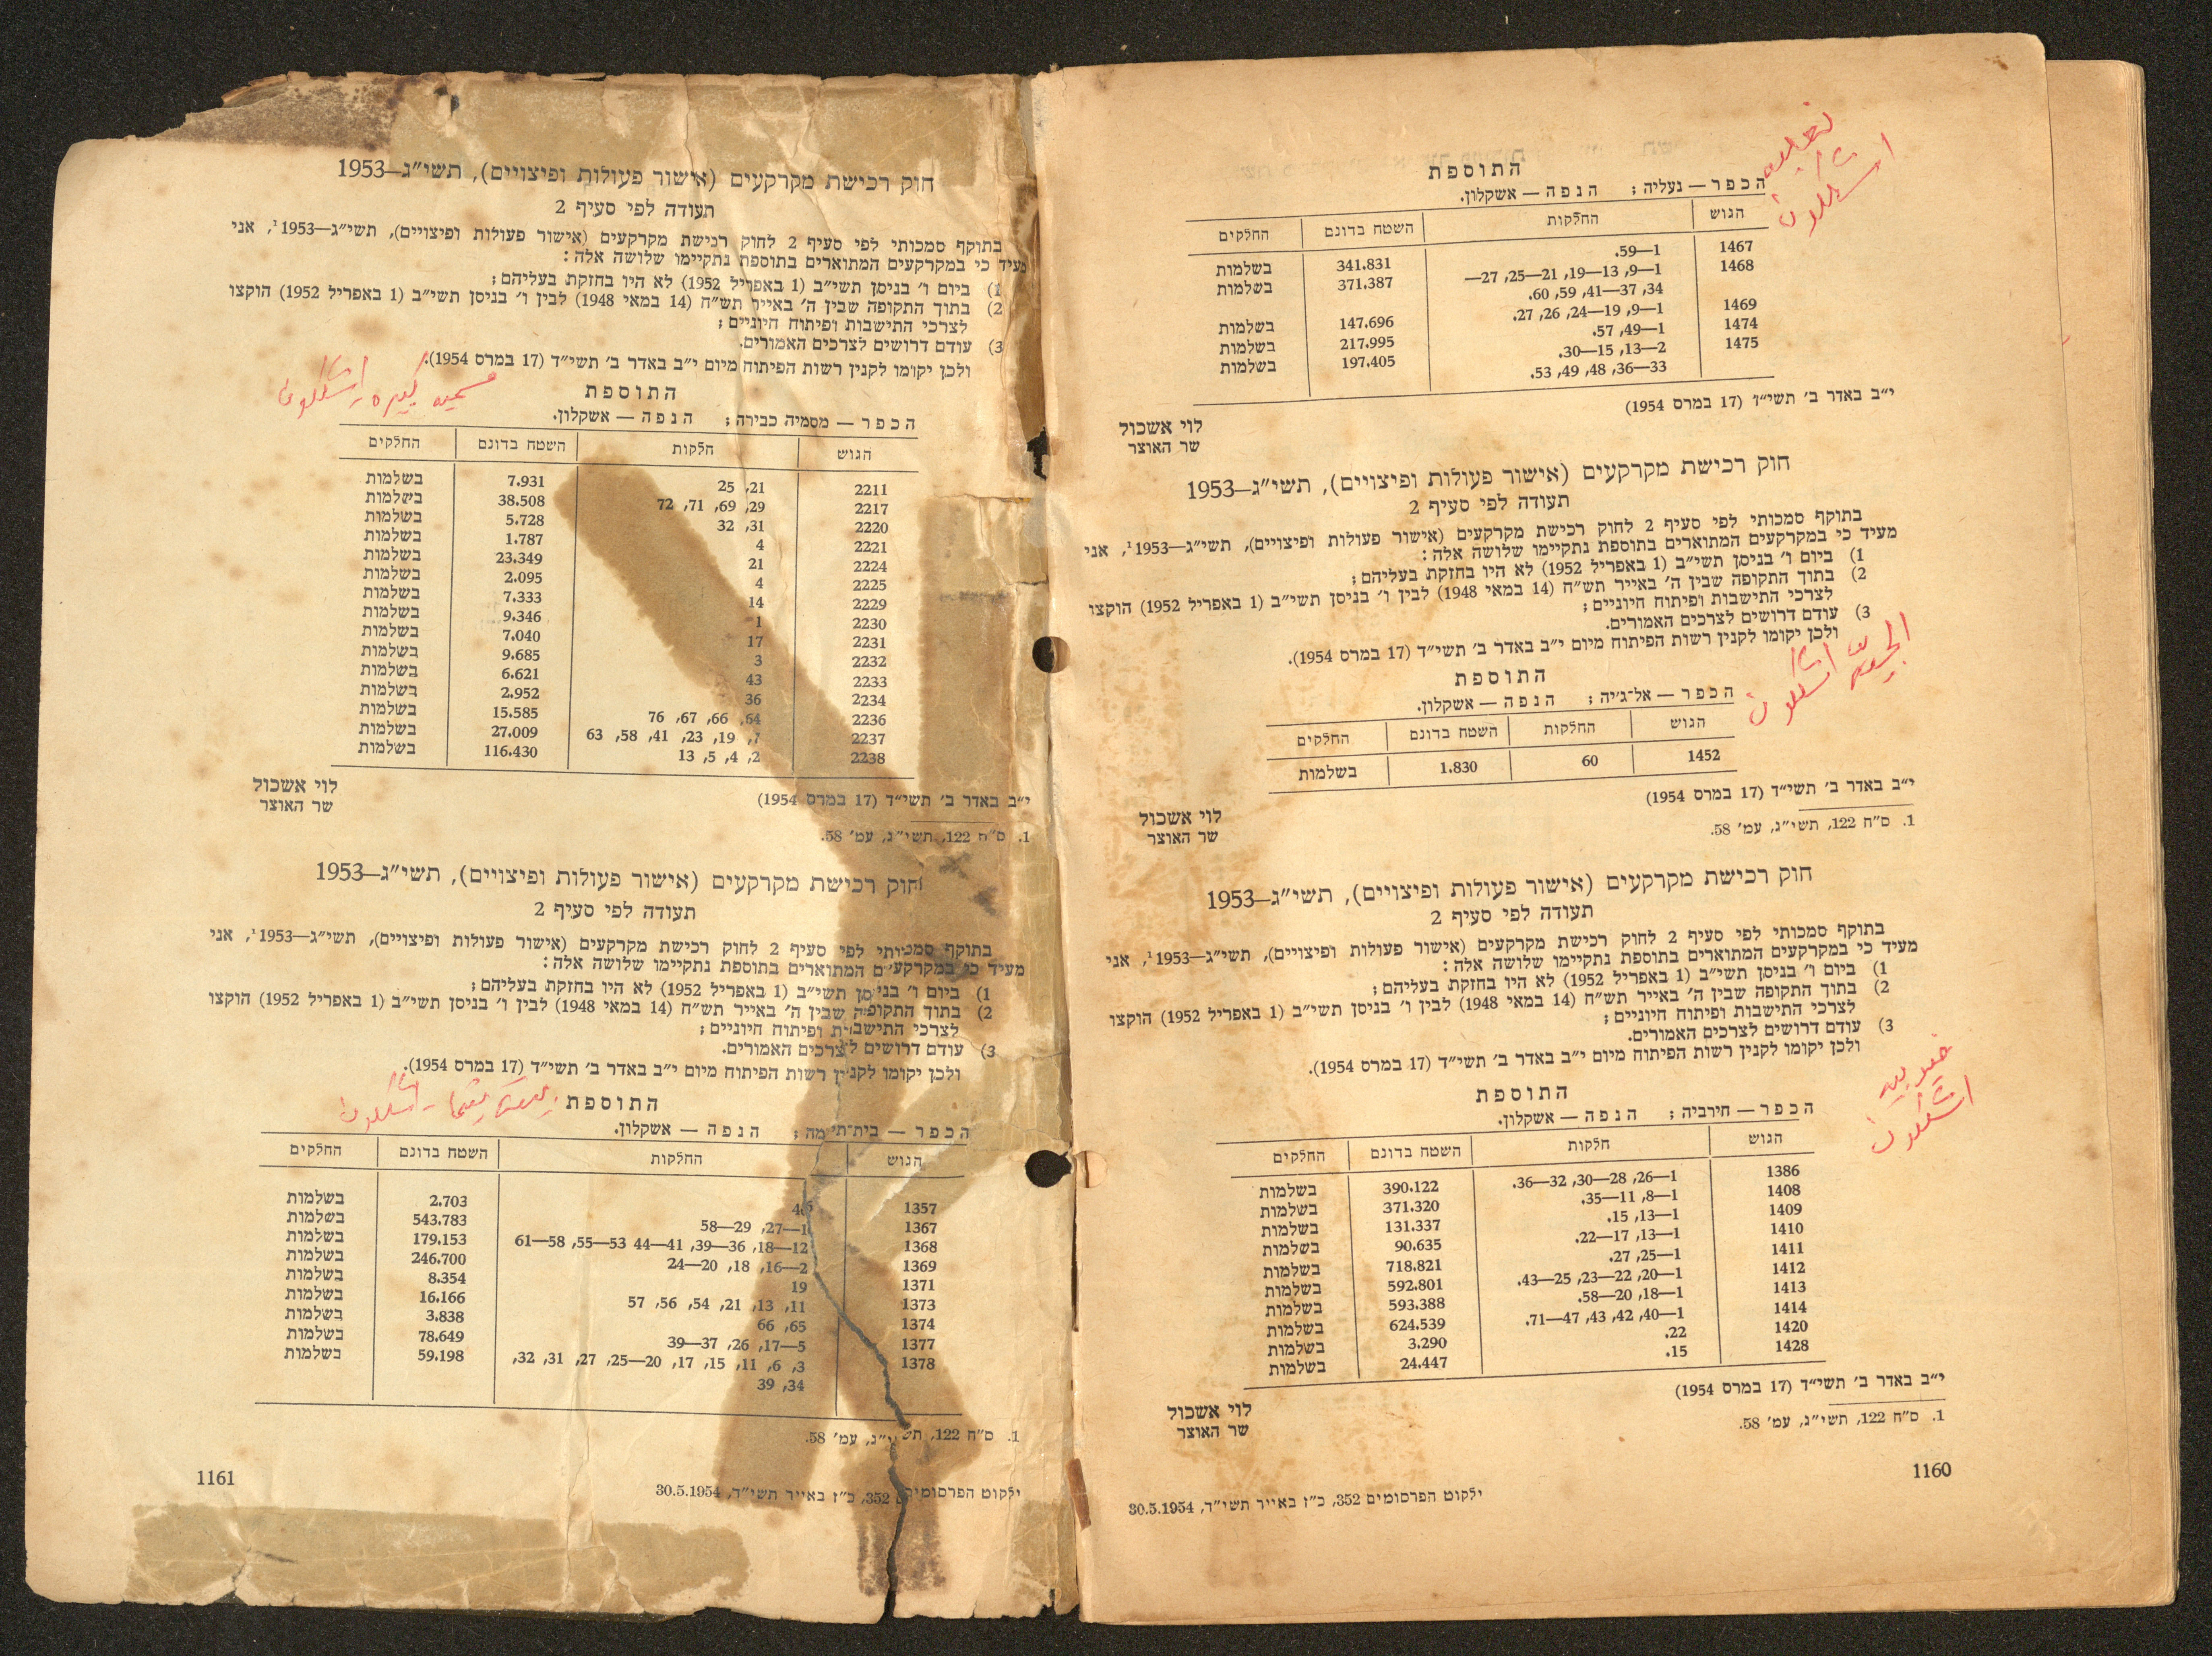 התוספת
הכפר — נעליה; הנפה — אשקלון.
نعليه
اشكلون
הגוש החלקות השטח בדונם החלקים
1467 1—59. 341.831 בשלמות
1468 1—9, 13—19, 21—25, 27— 371.387 בשלמות
34, 37—41, 59, 60.
1469 1—9, 19—24, 26, 27. 147.696 בשלמות
1474 1—49, 57. 217.995 בשלמות
1475 2—13, 15—30. 197.405 בשלמות
33—36, 48, 49, 53.
י״ב באדר ב׳ תשי״ד (17 במרס 1954)
לוי אשכול
שר האוצר
חוק רכישת מקרקעים (אישור פעולות ופיצויים), תשי״ג—1953
תעודה לפי סעיף 2
בתוקף סמכותי לפי סעיף 2 לחוק רכישת מקרקעים (אישור פעולות ופיצויים), תשי״ג—1953¹, אני
מעיד כי במקרקעים המתוארים בתוספת נתקיימו שלושה אלה:
1) ביום ו׳ בניסן תשי״ב (1 באפריל 1952) לא היו בחזקת בעליהם;
2) בתוך התקופה שבין ה׳ באייר תש״ח (14 במאי 1948) לבין ו׳ בניסן תשי״ב (1 באפריל 1952) הוקצו
לצרכי התישבות ופיתוח חיוניים;
3) עודם דרושים לצרכים האמורים.
ולכן יקומו לקנין רשות הפיתוח מיום י״ב באדר ב׳ תשי״ד (17 במרס 1954).
התוספת
הכפר — אל־ג׳יה; הנפה — אשקלון.
الجيه
اشكلون
הגוש החלקות השטח בדונם החלקים
1452 60 1.830 בשלמות
י״ב באדר ב׳ תשי״ד (17 במרס 1954)
לוי אשכול
שר האוצר
1. ס״ח 122, תשי״ג, עמ׳ 58.
חוק רכישת מקרקעים (אישור פעולות ופיצויים), תשי״ג—1953
תעודה לפי סעיף 2
בתוקף סמכותי לפי סעיף 2 לחוק רכישת מקרקעים (אישור פעולות ופיצויים), תשי״ג—1953¹, אני
מעיד כי במקרקעים המתוארים בתוספת נתקיימו שלושה אלה:
1) ביום ו׳ בניסן תשי״ב (1 באפריל 1952) לא היו בחזקת בעליהם;
2) בתוך התקופה שבין ה׳ באייר תש״ח (14 במאי 1948) לבין ו׳ בניסן תשי״ב (1 באפריל 1952) הוקצו
לצרכי התישבות ופיתוח חיוניים;
3) עודם דרושים לצרכים האמורים.
ולכן יקומו לקנין רשות הפיתוח מיום י״ב באדר ב׳ תשי״ד (17 במרס 1954).
התוספת
הכפר — חירביה; הנפה — אשקלון.
اشكلون
הגוש חלקות השטח בדונם החלקים
1386 1—26, 28—30, 32—36. 390.122 בשלמות
1408 1—8, 11—35. 371.320 בשלמות
1409 1—13, 15. 131.337 בשלמות
1410 1—13, 17—22. 90.635 בשלמות
1411 1—25, 27. 718.821 בשלמות
1412 1—20, 22—23, 25—43. 592.801 בשלמות
1413 1—18, 20—58. 593.388 בשלמות
1414 1—40, 42, 43, 47—71. 624.539 בשלמות
1420 22. 3.290 בשלמות
1428 15. 24.447 בשלמות
י״ב באדר ב׳ תשי״ד (17 במרס 1954)
לוי אשכול
שר האוצר
1. ס״ח 122, תשי״ג, עמ׳ 58.
1160
ילקוט הפרסומים 352, כ״ז באייר תשי״ד, 30.5.1954
חוק רכישת מקרקעים (אישור פעולות ופיצויים), תשי״ג—1953
תעודה לפי סעיף 2
בתוקף סמכותי לפי סעיף 2 לחוק רכישת מקרקעים (אישור פעולות ופיצויים), תשי״ג—1953¹, אני
מעיד כי במקרקעים המתוארים בתוספת נתקיימו שלושה אלה:
1) ביום ו׳ בניסן תשי״ב (1 באפריל 1952) לא היו בחזקת בעליהם;
2) בתוך התקופה שבין ה׳ באייר תש״ח (14 במאי 1948) לבין ו׳ בניסן תשי״ב (1 באפריל 1952) הוקצו
לצרכי התישבות ופיתוח חיוניים;
3) עודם דרושים לצרכים האמורים.
ולכן יקומו לקנין רשות הפיתוח מיום י״ב באדר ב׳ תשי״ד (17 במרס 1954).
كبيره - اشكلون
התוספת
הכפר — מסמיה כבירה; הנפה — אשקלון.
הגוש חלקות השטח בדונם החלקים
2211 21, 25 7.931 בשלמות
2217 29, 69, 71, 72 38.508 בשלמות
2220 31, 32 5.728 בשלמות
2221 4 1.787 בשלמות
2224 21 23.349 בשלמות
2225 4 2.095 בשלמות
2229 14 7.333 בשלמות
2230 1 9.346 בשלמות
2231 17 7.040 בשלמות
2232 3 9.685 בשלמות
2233 43 6.621 בשלמות
2234 36 2.952 בשלמות
2236 64, 66, 67, 76 15.585 בשלמות
2237 7, 19, 23, 41, 58, 63 27.009 בשלמות
2238 2, 4, 5, 13 116.430 בשלמות
י״ב באדר ב׳ תשי״ד (17 במרס 1954)
לוי אשכול
שר האוצר
1. ס״ח 122, תשי״ג, עמ׳ 58.
חוק רכישת מקרקעים (אישור פעולות ופיצויים), תשי״ג—1953
תעודה לפי סעיף 2
בתוקף סמכותי לפי סעיף 2 לחוק רכישת מקרקעים (אישור פעולות ופיצויים), תשי״ג—1953¹, אני
מעיד כי במקרקעים המתוארים בתוספת נתקיימו שלושה אלה:
1) ביום ו׳ בניסן תשי״ב (1 באפריל 1952) לא היו בחזקת בעליהם;
2) בתוך התקופה שבין ה׳ באייר תש״ח (14 במאי 1948) לבין ו׳ בניסן תשי״ב (1 באפריל 1952) הוקצו
לצרכי התישבות ופיתוח חיוניים;
3) עודם דרושים לצרכים האמורים.
ולכן יקומו לקנין רשות הפיתוח מיום י״ב באדר ב׳ תשי״ד (17 במרס 1954).
התוספת
اشكلون
הכפר — בית־תימה; הנפה — אשקלון.
הגוש החלקות השטח בדונם החלקים
1357 46 2.703 בשלמות
1367 1—27, 29—58 543.783 בשלמות
1368 12—18, 36—39, 41—44 53—55, 58—61 179.153 בשלמות
1369 2—16, 18, 20—24 246.700 בשלמות
1371 19 8.354 בשלמות
1373 11, 13, 21, 54, 56, 57 16.166 בשלמות
1374 65, 66 3.838 בשלמות
1377 5—17, 26, 37—39 78.649 בשלמות
1378 3, 6, 11, 15, 17, 20—25, 27, 31, 32, 59.198 בשלמות
34, 39
1. ס״ח 122, תשי״ג, עמ׳ 58.
ילקוט הפרסומים 352, כ״ז באייר תשי״ד, 30.5.1954
1161